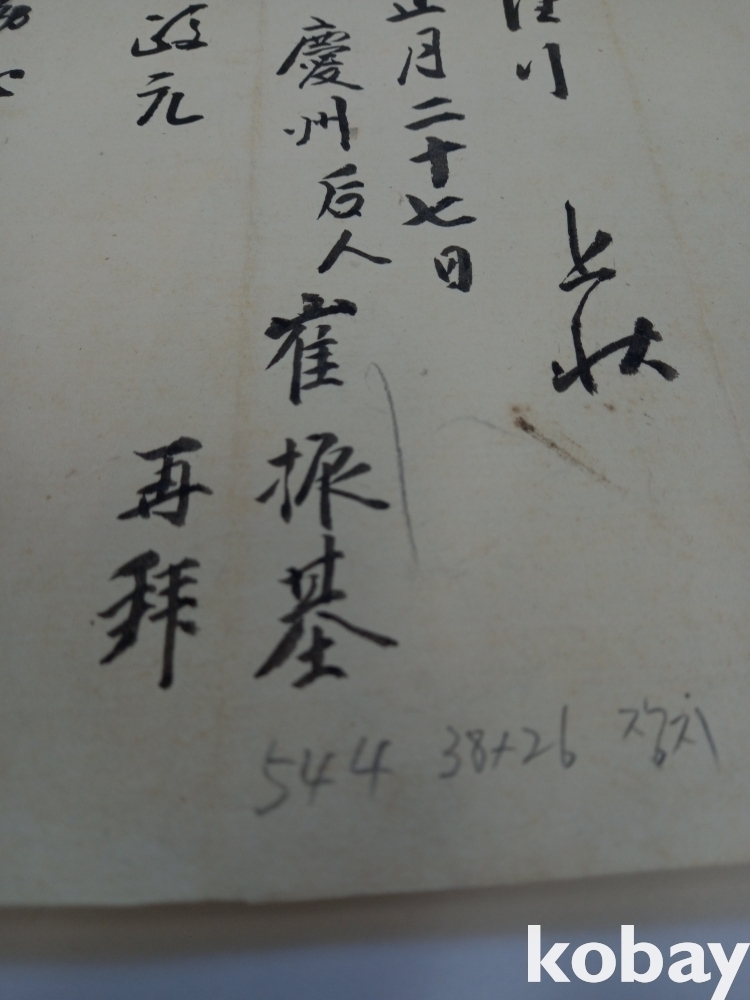 川
上狀
正月二十七日
慶州后人崔振基
政元 再拜
544 38×26 장지
kobay